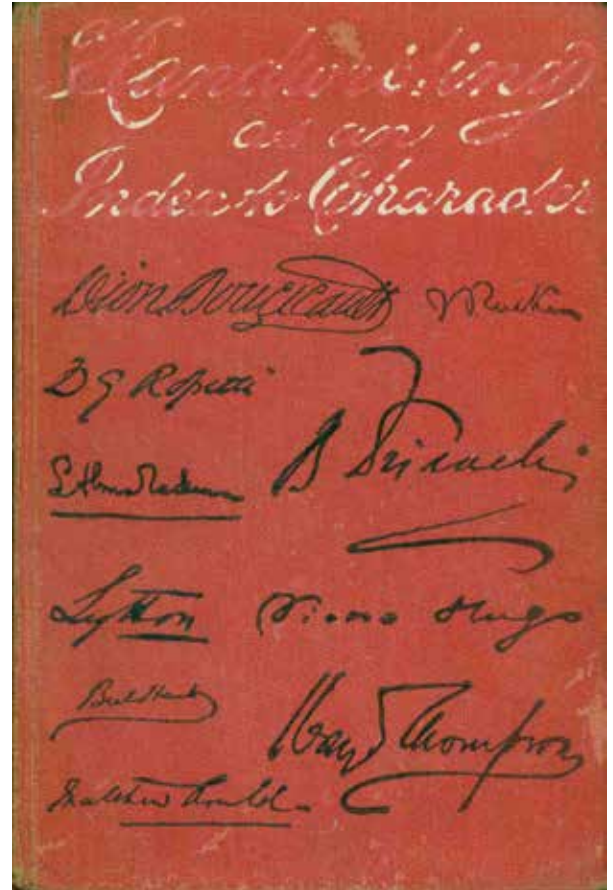 Handwriting
as an
Index to Character
Dion Boucicault
J Ruskin
D G Rossetti
B Disraeli
L Alma Tadema
Lytton
Victor Hugo
Bret Harte
Henry Thompson
Matthew Arnold